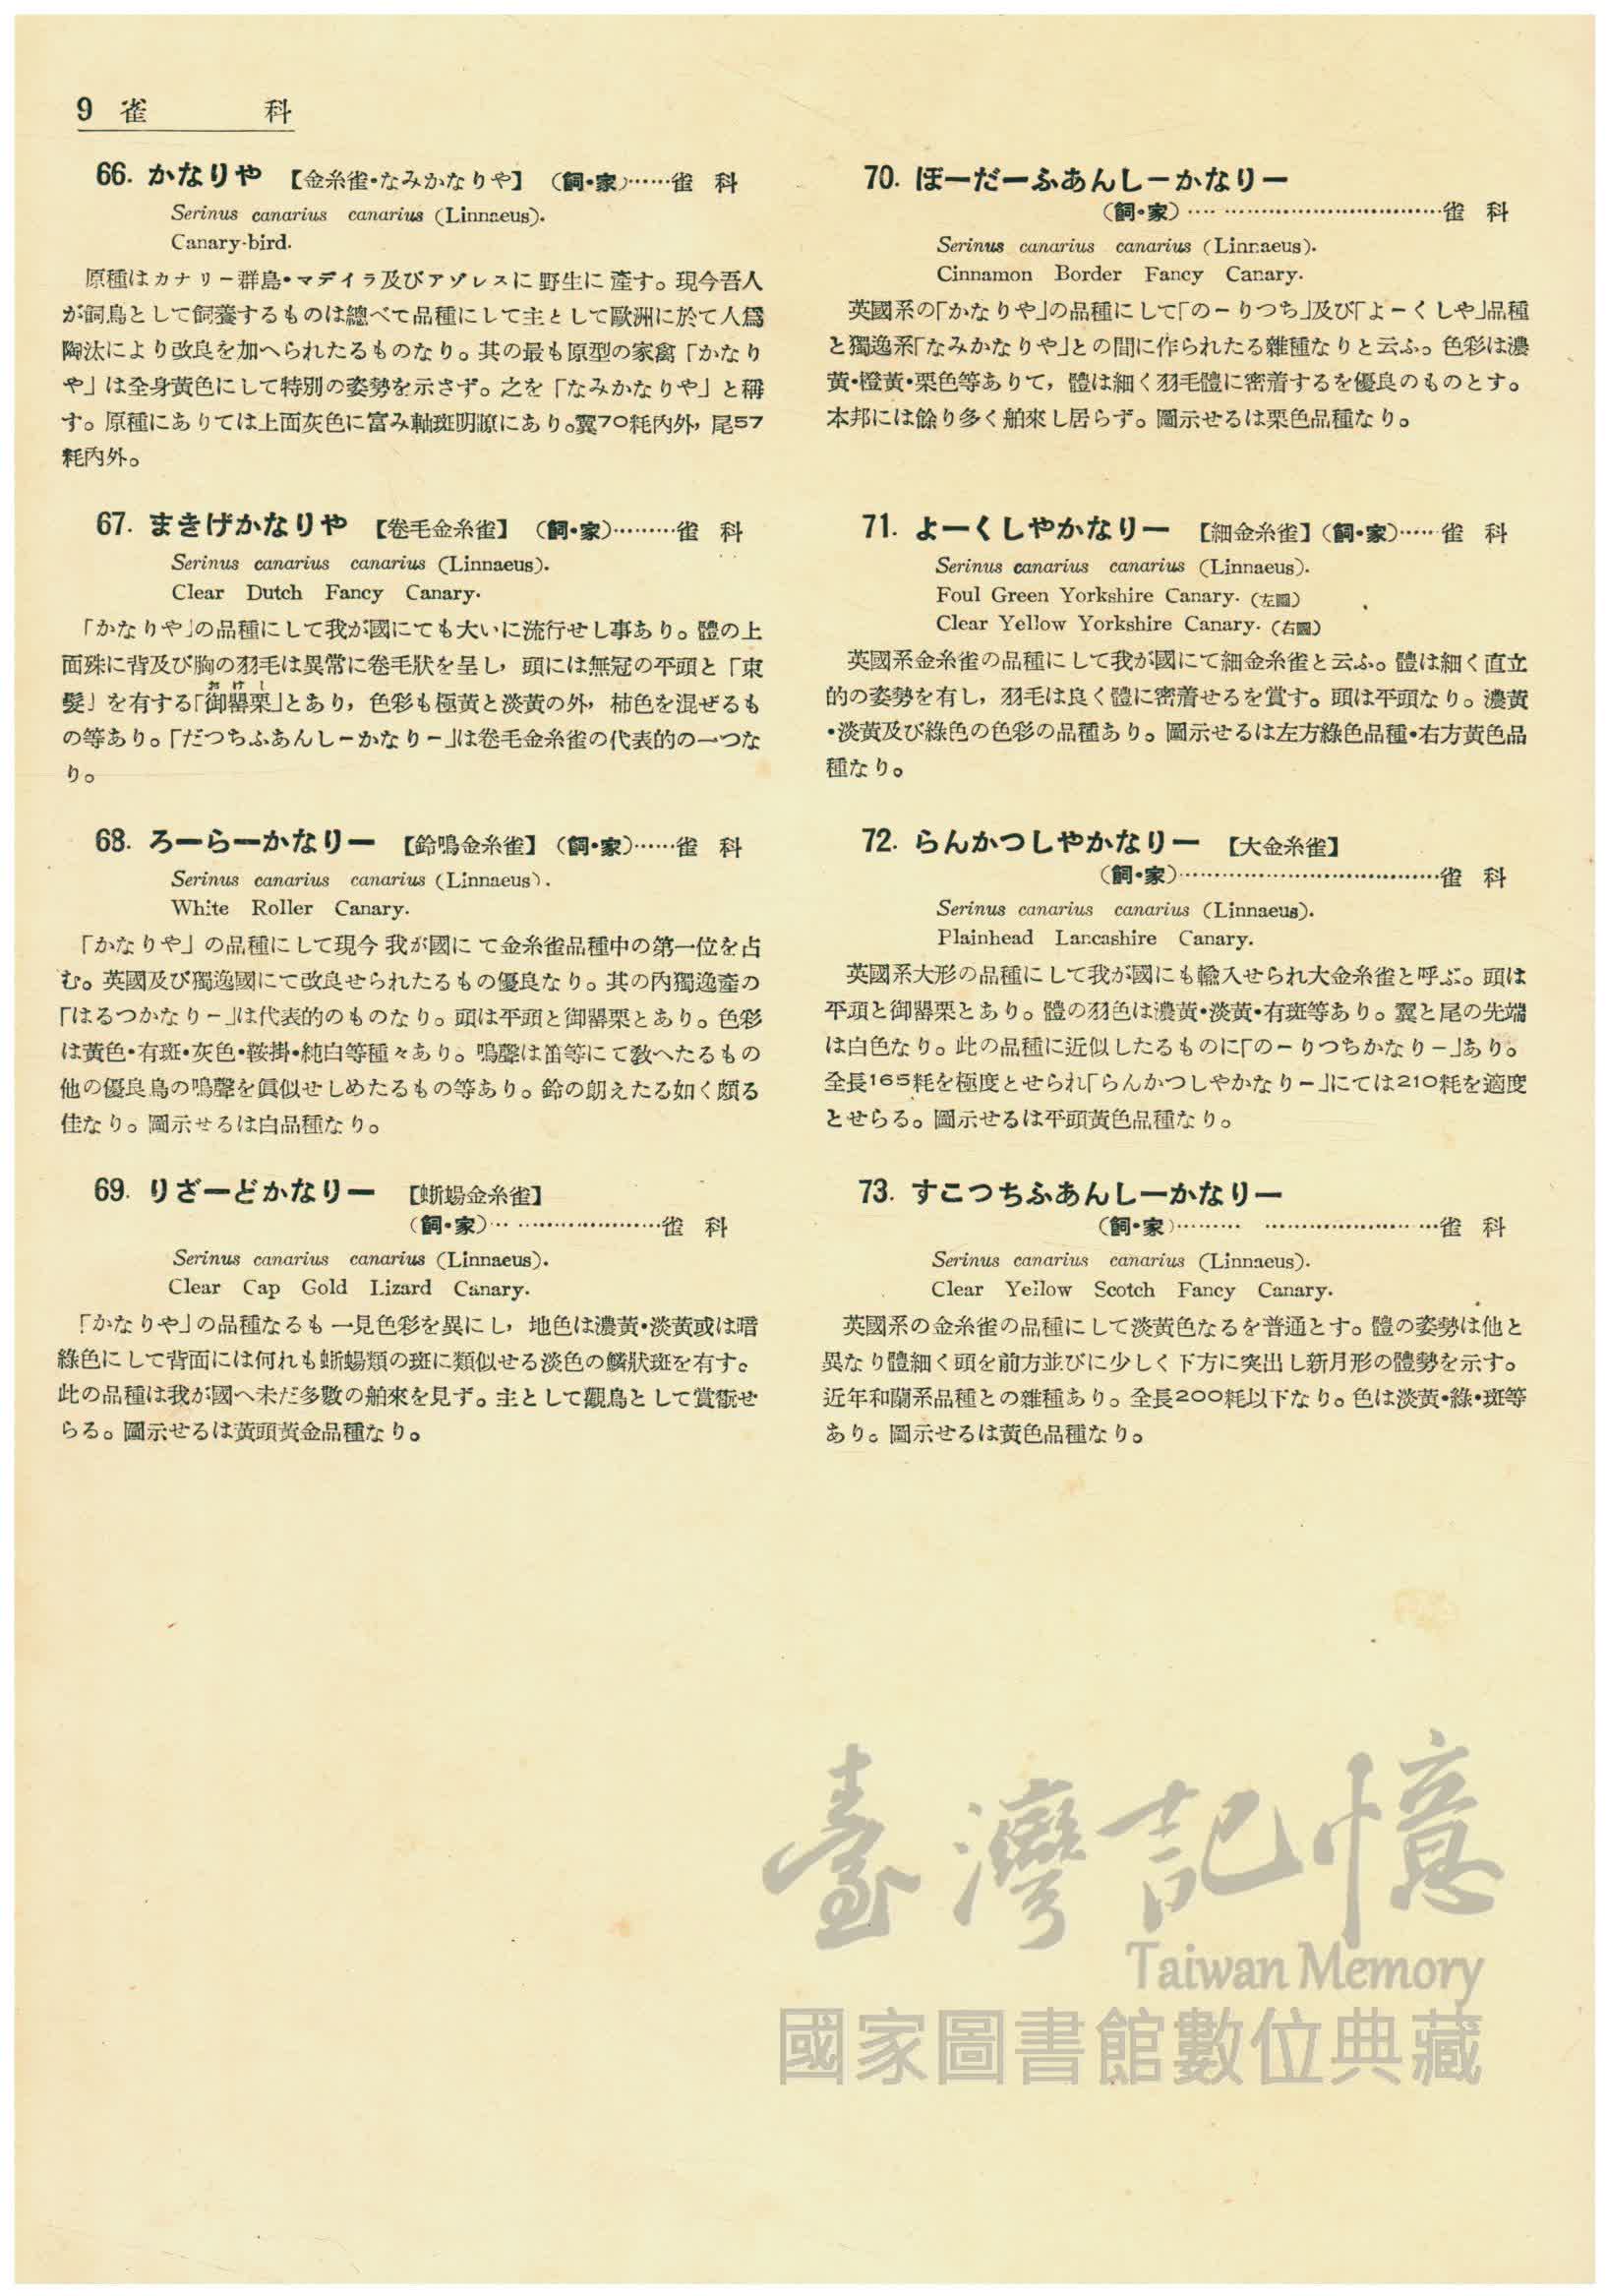 9 雀 科
66. かなりや 【金糸雀・なみかなりや】 (飼・家)……雀 科
Serinus canarius canarius (Linnaeus).
Canary-bird.
原種はカナリー群島・マデイラ及びアゾレスに野生に產す。現今吾人
が飼鳥として飼養するものは總べて品種にして主として歐洲に於て人爲
陶汰により改良を加へられたるものなり。其の最も原型の家禽「かなり
や」は全身黃色にして特別の姿勢を示さず。之を「なみかなりや」と稱
す。原種にありては上面灰色に富み軸斑明瞭にあり。翼70粍內外，尾57
粍內外。
67. まきげかなりや 【卷毛金糸雀】 (飼・家)………雀 科
Serinus canarius canarius (Linnaeus).
Clear Dutch Fancy Canary.
「かなりや」の品種にして我が國にても大いに流行せし事あり。體の上
面殊に背及び胸の羽毛は異常に卷毛狀を呈し，頭には無冠の平頭と「束
髮」を有する「御罌栗」とあり，色彩も極黃と淡黃の外，柿色を混ぜるも
の等あり。「だつちふあんしーかなりー」は卷毛金糸雀の代表的の一つな
り。
68. ろーらーかなりー 【鈴鳴金糸雀】 (飼・家)……雀 科
Serinus canarius canarius (Linnaeus).
White Roller Canary.
「かなりや」の品種にして現今我が國にて金糸雀品種中の第一位を占
む。英國及び獨逸國にて改良せられたるもの優良なり。其の內獨逸產の
「はるつかなりー」は代表的のものなり。頭は平頭と御罌栗とあり。色彩
は黃色・有斑・灰色・鞍掛・純白等種々あり。鳴聲は笛等にて敎へたるもの
他の優良鳥の鳴聲を眞似せしめたるもの等あり。鈴の朗えたる如く頗る
佳なり。圖示せるは白品種なり。
69. りざーどかなりー 【蜥蜴金糸雀】
(飼・家)……………………雀 科
Serinus canarius canarius (Linnaeus).
Clear Cap Gold Lizard Canary.
「かなりや」の品種なるも一見色彩を異にし，地色は濃黃・淡黃或は暗
綠色にして背面には何れも蜥蜴類の斑に類似せる淡色の鱗狀斑を有す。
此の品種は我が國へ未だ多數の舶來を見ず。主として觀鳥として賞翫せ
らる。圖示せるは黃頭黃金品種なり。
70. ぼーだーふあんしーかなりー
(飼・家)………………………………雀 科
Serinus canarius canarius (Linnaeus).
Cinnamon Border Fancy Canary.
英國系の「かなりや」の品種にして「のーりつち」及び「よーくしや」品種
と獨逸系「なみかなりや」との間に作られたる雜種なりと云ふ。色彩は濃
黃・橙黃・栗色等ありて，體は細く羽毛體に密着するを優良のものとす。
本邦には餘り多く舶來し居らず。圖示せるは栗色品種なり。
71. よーくしやかなりー 【細金糸雀】(飼・家)……雀 科
Serinus canarius canarius (Linnaeus).
Foul Green Yorkshire Canary. (左圖)
Clear Yellow Yorkshire Canary. (右圖)
英國系金糸雀の品種にして我が國にて細金糸雀と云ふ。體は細く直立
的の姿勢を有し，羽毛は良く體に密着せるを賞す。頭は平頭なり。濃黃
・淡黃及び綠色の色彩の品種あり。圖示せるは左方綠色品種・右方黃色品
種なり。
72. らんかつしやかなりー 【大金糸雀】
(飼・家)………………………………雀 科
Serinus canarius canarius (Linnaeus).
Plainhead Lancashire Canary.
英國系大形の品種にして我が國にも輸入せられ大金糸雀と呼ぶ。頭は
平頭と御罌栗とあり。體の羽色は濃黃・淡黃・有斑等あり。翼と尾の先端
は白色なり。此の品種に近似したるものに「のーりつちかなりー」あり。
全長165粍を極度とせられ「らんかつしやかなりー」にては210粍を適度
とせらる。圖示せるは平頭黃色品種なり。
73. すこつちふあんしーかなりー
(飼・家)……… ……………………雀 科
Serinus canarius canarius (Linnaeus).
Clear Yellow Scotch Fancy Canary.
英國系の金糸雀の品種にして淡黃色なるを普通とす。體の姿勢は他と
異なり體細く頭を前方並びに少しく下方に突出し新月形の體勢を示す。
近年和蘭系品種との雜種あり。全長200粍以下なり。色は淡黃・綠・斑等
あり。圖示せるは黃色品種なり。
臺灣記憶
Taiwan Memory
國家圖書館數位典藏